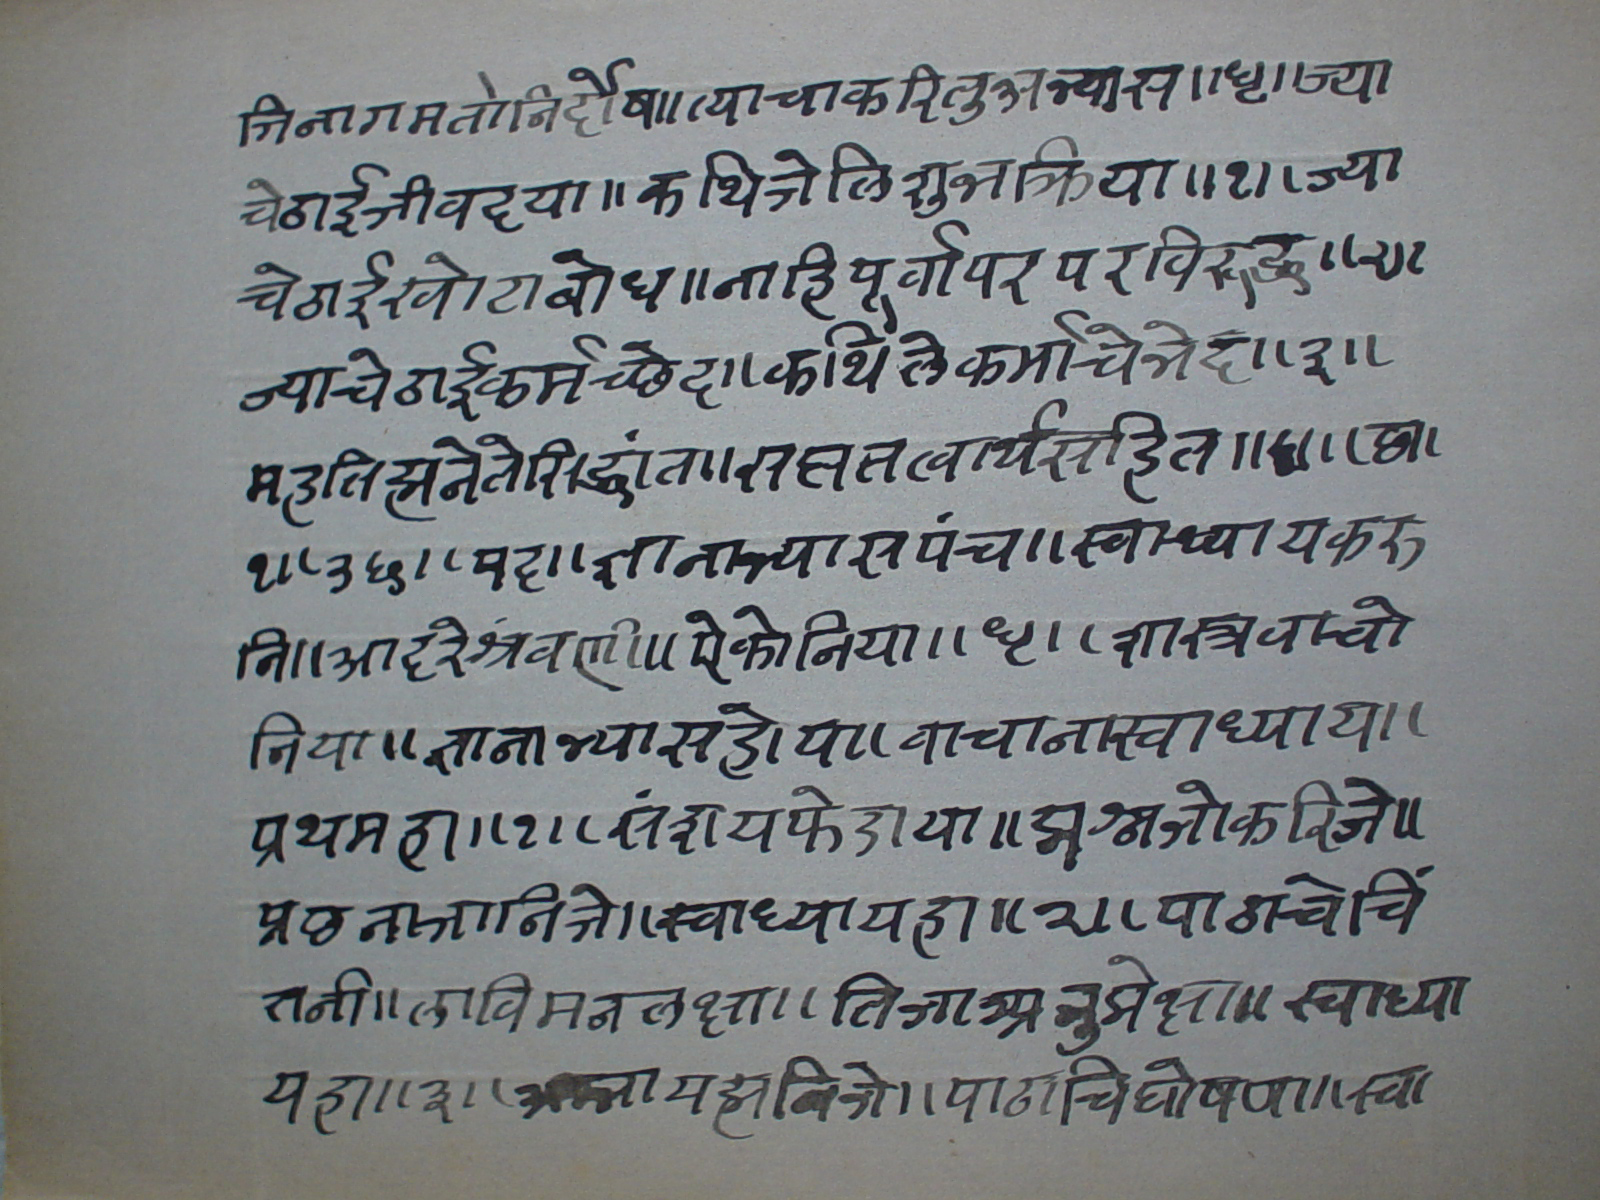 जिनागमतो निर्दोष॥ त्याचा करि तु अभ्यास॥ धृ॥ ज्या
चे ठाई जीवदया॥ कथिजेलि शुभक्रिया॥१॥ ज्या
चे ठाई खोटा बोध॥ नाहि पूर्वापर परविरुद्ध॥२॥
ज्याचे ठाई कर्मच्छेद॥ कथिले कर्माचे भेद॥३॥
महति ह्मने तो सिद्धांत॥ सप्त तत्वार्थ सहित॥४॥छ॥
१॥३६॥ पद॥ ज्ञानाभ्यास पंच॥ स्वाध्याय करु
नि॥ आदरे श्रंवणी॥ ऐकोनिया॥ धृ॥ शास्त्र वाचो
निया॥ ज्ञानाभ्यास होय॥ वाचाना स्वाध्याय॥
प्रथम हा॥१॥ संशय फेडाया॥ प्रश्न जो करिजे॥
प्रछना जानिजे॥ स्वाध्याय हा॥२॥ पाठाचे चिं
तनी॥ लावि मन लक्षा॥ तिजा अनुप्रेक्षा॥ स्वाध्या
य हा॥३॥ आम्नाय ह्मनिजे॥ पाठाचि घोषणा॥ स्वा